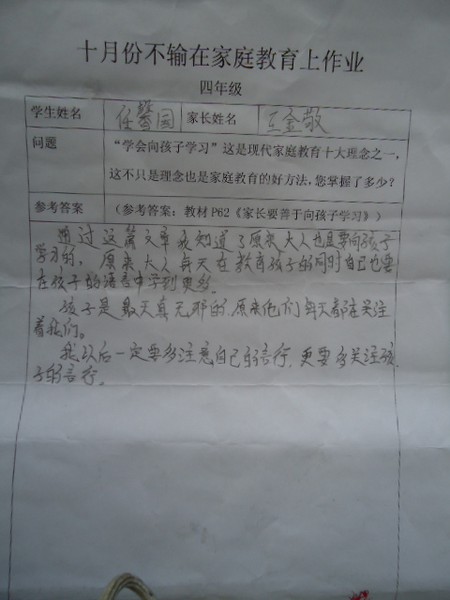 十月份不输在家庭教育上作业
四年级
学生姓名 任馨园 家长姓名 王金敬
问题 “学会向孩子学习”这是现代家庭教育十大理念之一，
这不只是理念也是家庭教育的好方法，您掌握了多少？
参考答案 （参考答案：教材P62《家长要善于向孩子学习》）
通过这篇文章我知道了原来大人也是要向孩子
学习的，原来大人每天在教育孩子的同时自己也要
在孩子的语言中学到更多.
孩子是最天真无邪的.原来他们每天都在关注
着我们。
我以后一定要多注意自己的言行.更要多关注孩
子的言行。